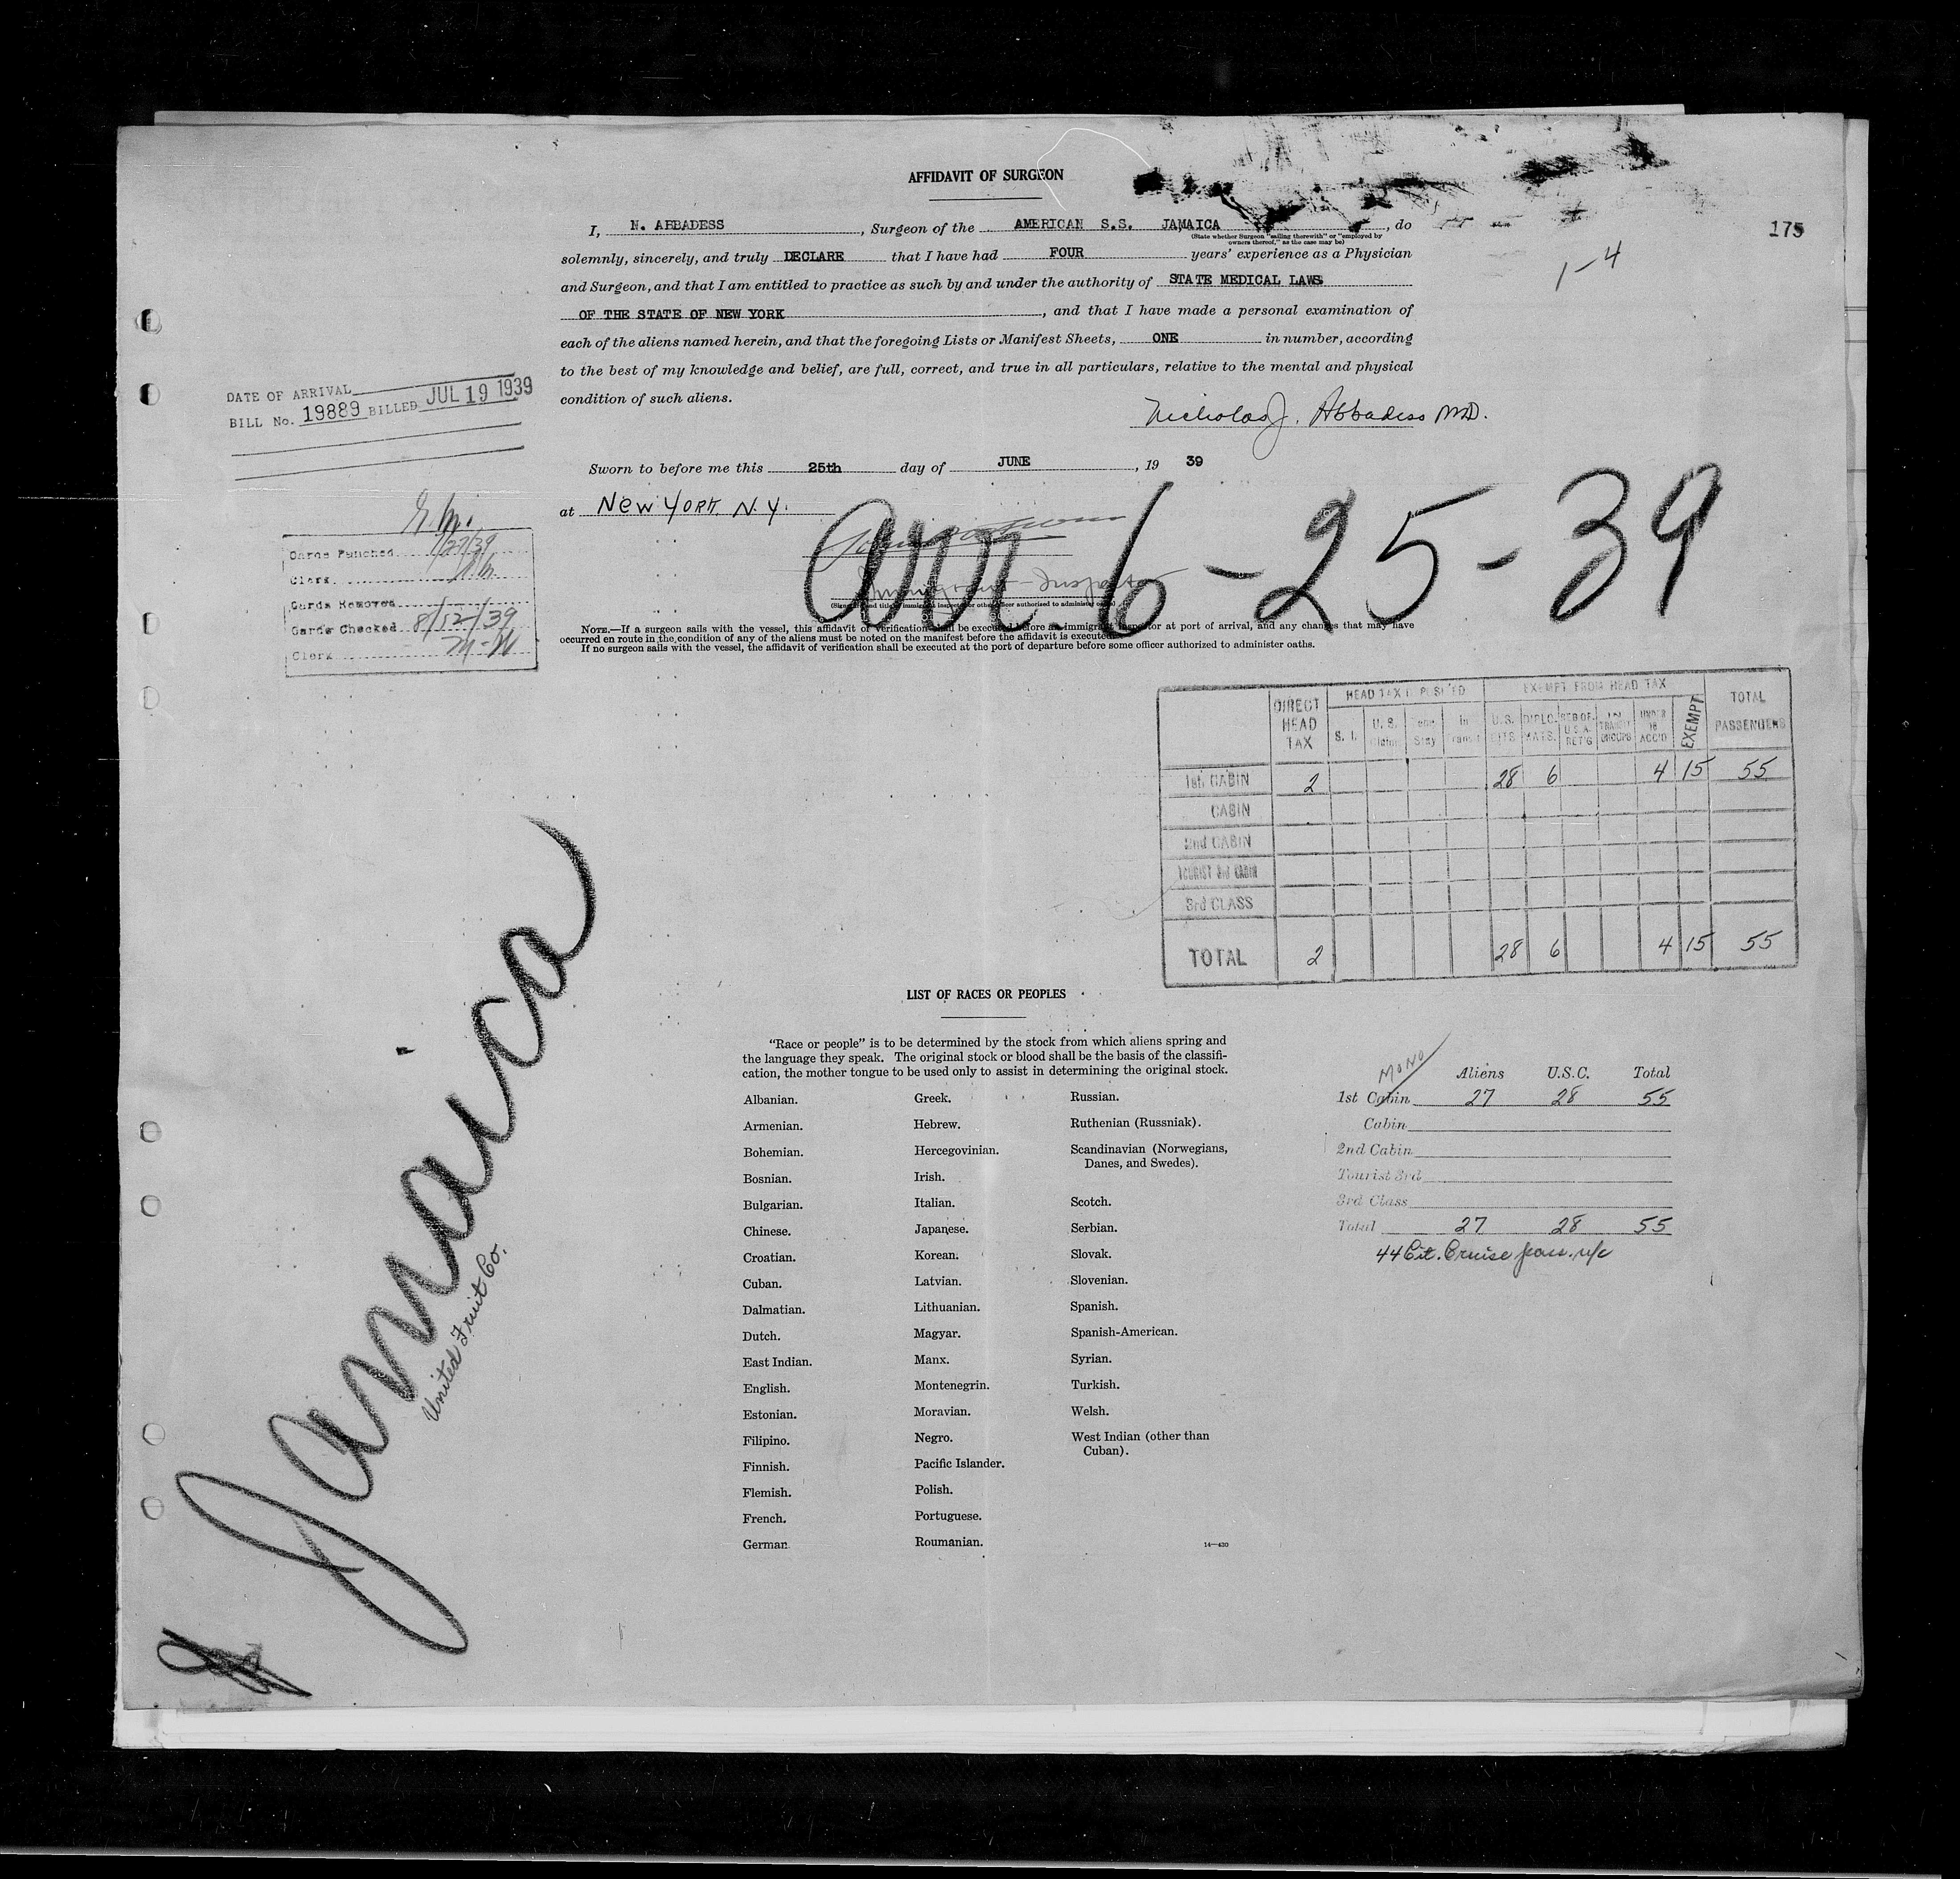 AFFIDAVIT OF SURGEON
175
I, N. ABBADESS, Surgeon of the AMERICAN S.S. JAMAICA, do
(State whether Surgeon "sailing therewith" or "employed by
owners thereof," as the case may be)
1-4
solemnly, sincerely, and truly DECLARE that I have had FOUR years' experience as a Physician
and Surgeon, and that I am entitled to practice as such by and under the authority of STATE MEDICAL LAWS
OF THE STATE OF NEW YORK, and that I have made a personal examination of
each of the aliens named herein, and that the foregoing Lists or Manifest Sheets, ONE in number, according
to the best of my knowledge and belief, are full, correct, and true in all particulars, relative to the mental and physical
condition of such aliens.
Nicholas J. Abbadess M.D.
DATE OF ARRIVAL
BILL No. 19889 BILLED JUL 19 1939
Sworn to before me this 25th day of JUNE, 19 39
at New York, N.Y.
Arr. 6-25-39
Immigrant Inspector
(Signature and title of immigrant inspector or other officer authorized to administer oaths)
NOTE.—If a surgeon sails with the vessel, this affidavit of verification shall be executed before an immigrant inspector at port of arrival, and any changes that may have
occurred en route in the condition of any of the aliens must be noted on the manifest before the affidavit is executed.
If no surgeon sails with the vessel, the affidavit of verification shall be executed at the port of departure before some officer authorized to administer oaths.
Cards Punched
Clerk
Cards Removed
Cards Checked
Clerk M-W
DIRECT HEAD TAX
HEAD TAX DEPOSITED
EXEMPT FROM HEAD TAX
TOTAL PASSENGERS
S. I. U. S. Temp. Stay In Transit U.S. CITS. DIPLO. MATS. UNDER 16 ACC'D EXEMPT
1st CABIN 2 28 6 4 15 55
CABIN
2nd CABIN
TOURIST 3rd CABIN
3rd CLASS
TOTAL 2 28 6 4 15 55
Jamaica
United Fruit Co.
LIST OF RACES OR PEOPLES
"Race or people" is to be determined by the stock from which aliens spring and
the language they speak. The original stock or blood shall be the basis of the classifi-
cation, the mother tongue to be used only to assist in determining the original stock.
Albanian.
Armenian.
Bohemian.
Bosnian.
Bulgarian.
Chinese.
Croatian.
Cuban.
Dalmatian.
Dutch.
East Indian.
English.
Estonian.
Filipino.
Finnish.
Flemish.
French.
German
Greek.
Hebrew.
Hercegovinian.
Irish.
Italian.
Japanese.
Korean.
Latvian.
Lithuanian.
Magyar.
Manx.
Montenegrin.
Moravian.
Negro.
Pacific Islander.
Polish.
Portuguese.
Roumanian.
Russian.
Ruthenian (Russniak).
Scandinavian (Norwegians,
Danes, and Swedes).
Scotch.
Serbian.
Slovak.
Slovenian.
Spanish.
Spanish-American.
Syrian.
Turkish.
Welsh.
West Indian (other than
Cuban).
14—430
MONO
Aliens U.S.C. Total
1st Cabin 27 28 55
Cabin
2nd Cabin
Tourist 3rd
3rd Class
Total 27 28 55
44 Cit. Cruise pass. n/c